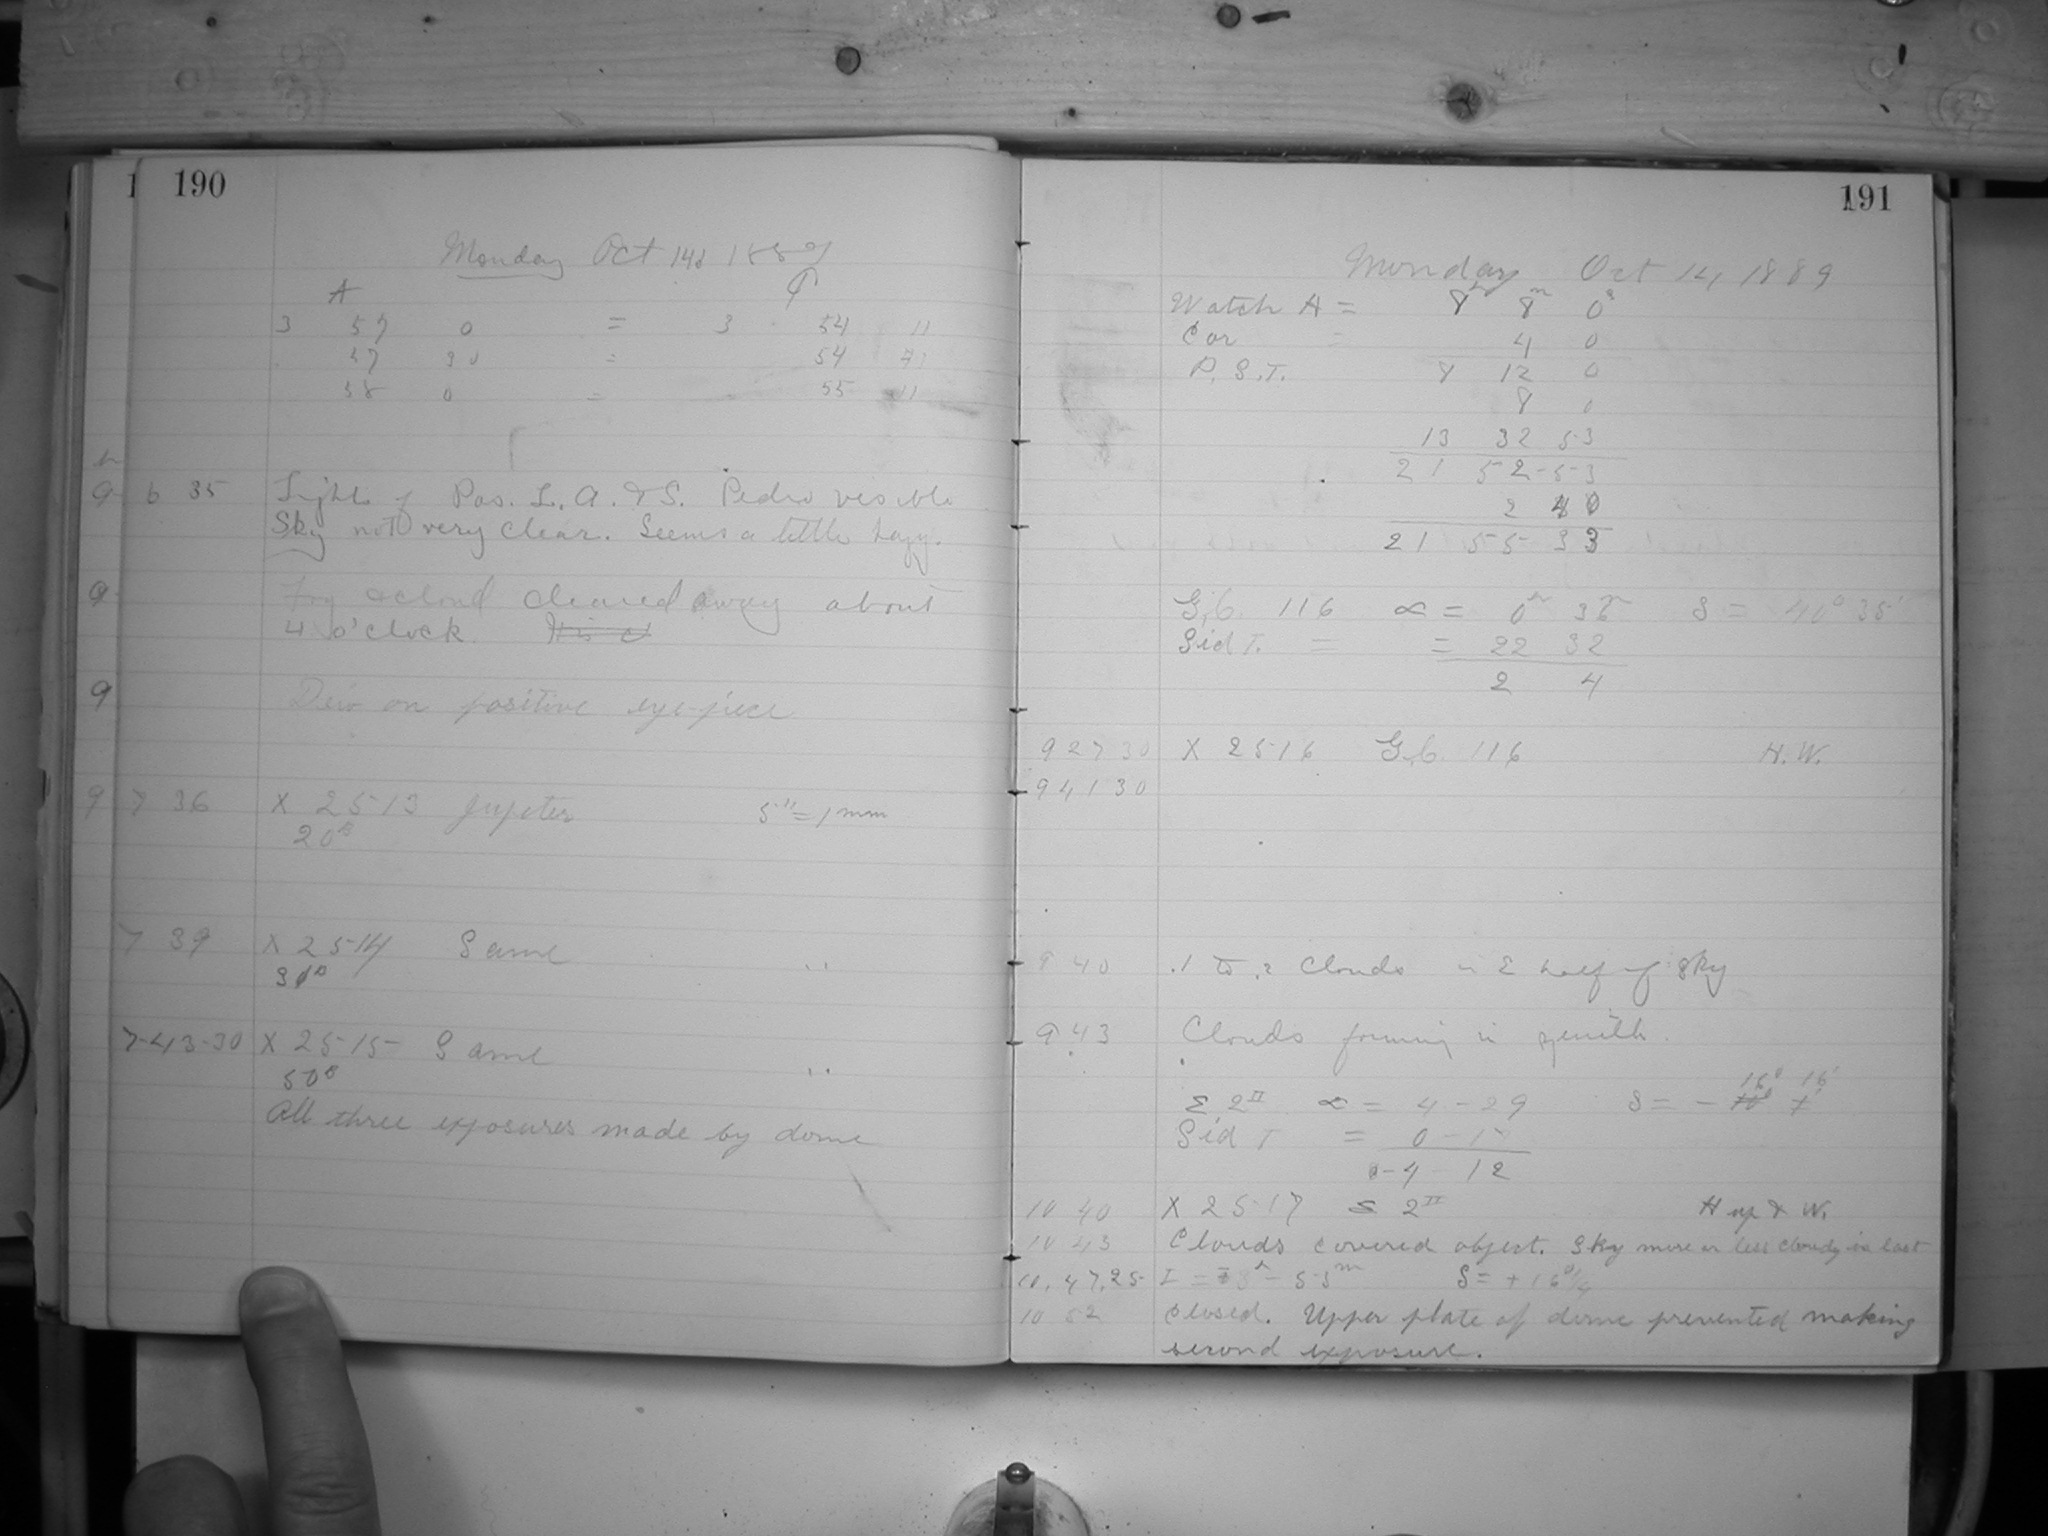 190
Monday Oct 14, 1889
A
3 57 0 = 3 54 11
57 30 = 54
58 0 = 55 11
h
9 6 35 Lights of Pas. L.A. & S. Pedro visible
Sky not very clear. Seems a little hazy.
9 Fog & cloud cleared away about
4 o'clock.
9 Dew on positive eye-piece
9 7 36 X 2513 Jupiter 5" = 1 mm
20s
7 39 X 2514 Same "
7-43-30 X 2515 Same "
50s
All three exposures made by dome
191
Monday Oct 14, 1889
Watch A = 8h 8m 0s
Cor = 4 0
P.S.T. 8 12 0
8 0
13 32 53
21 52 53
2 40
21 55 33
G.C. 116 α = 0h 36m δ = 40° 35'
Sid T. = = 22 32
2 4
9 27 30 X 2516 G.C. 116 H.W.
9 41 30
9 40 .1 to .2 Clouds in E half of sky
9 43 Clouds forming in zenith.
Σ 2II α = 4-29 δ = - 16° 16'
Sid T = 0-17
-4-12
10 40 X 2517 Σ 2II H up & W.
10 43 Clouds covered object. Sky more or less cloudy in last
10.47.25 δ = +16°
10 52 Closed. Upper plate of dome prevented making
second exposure.